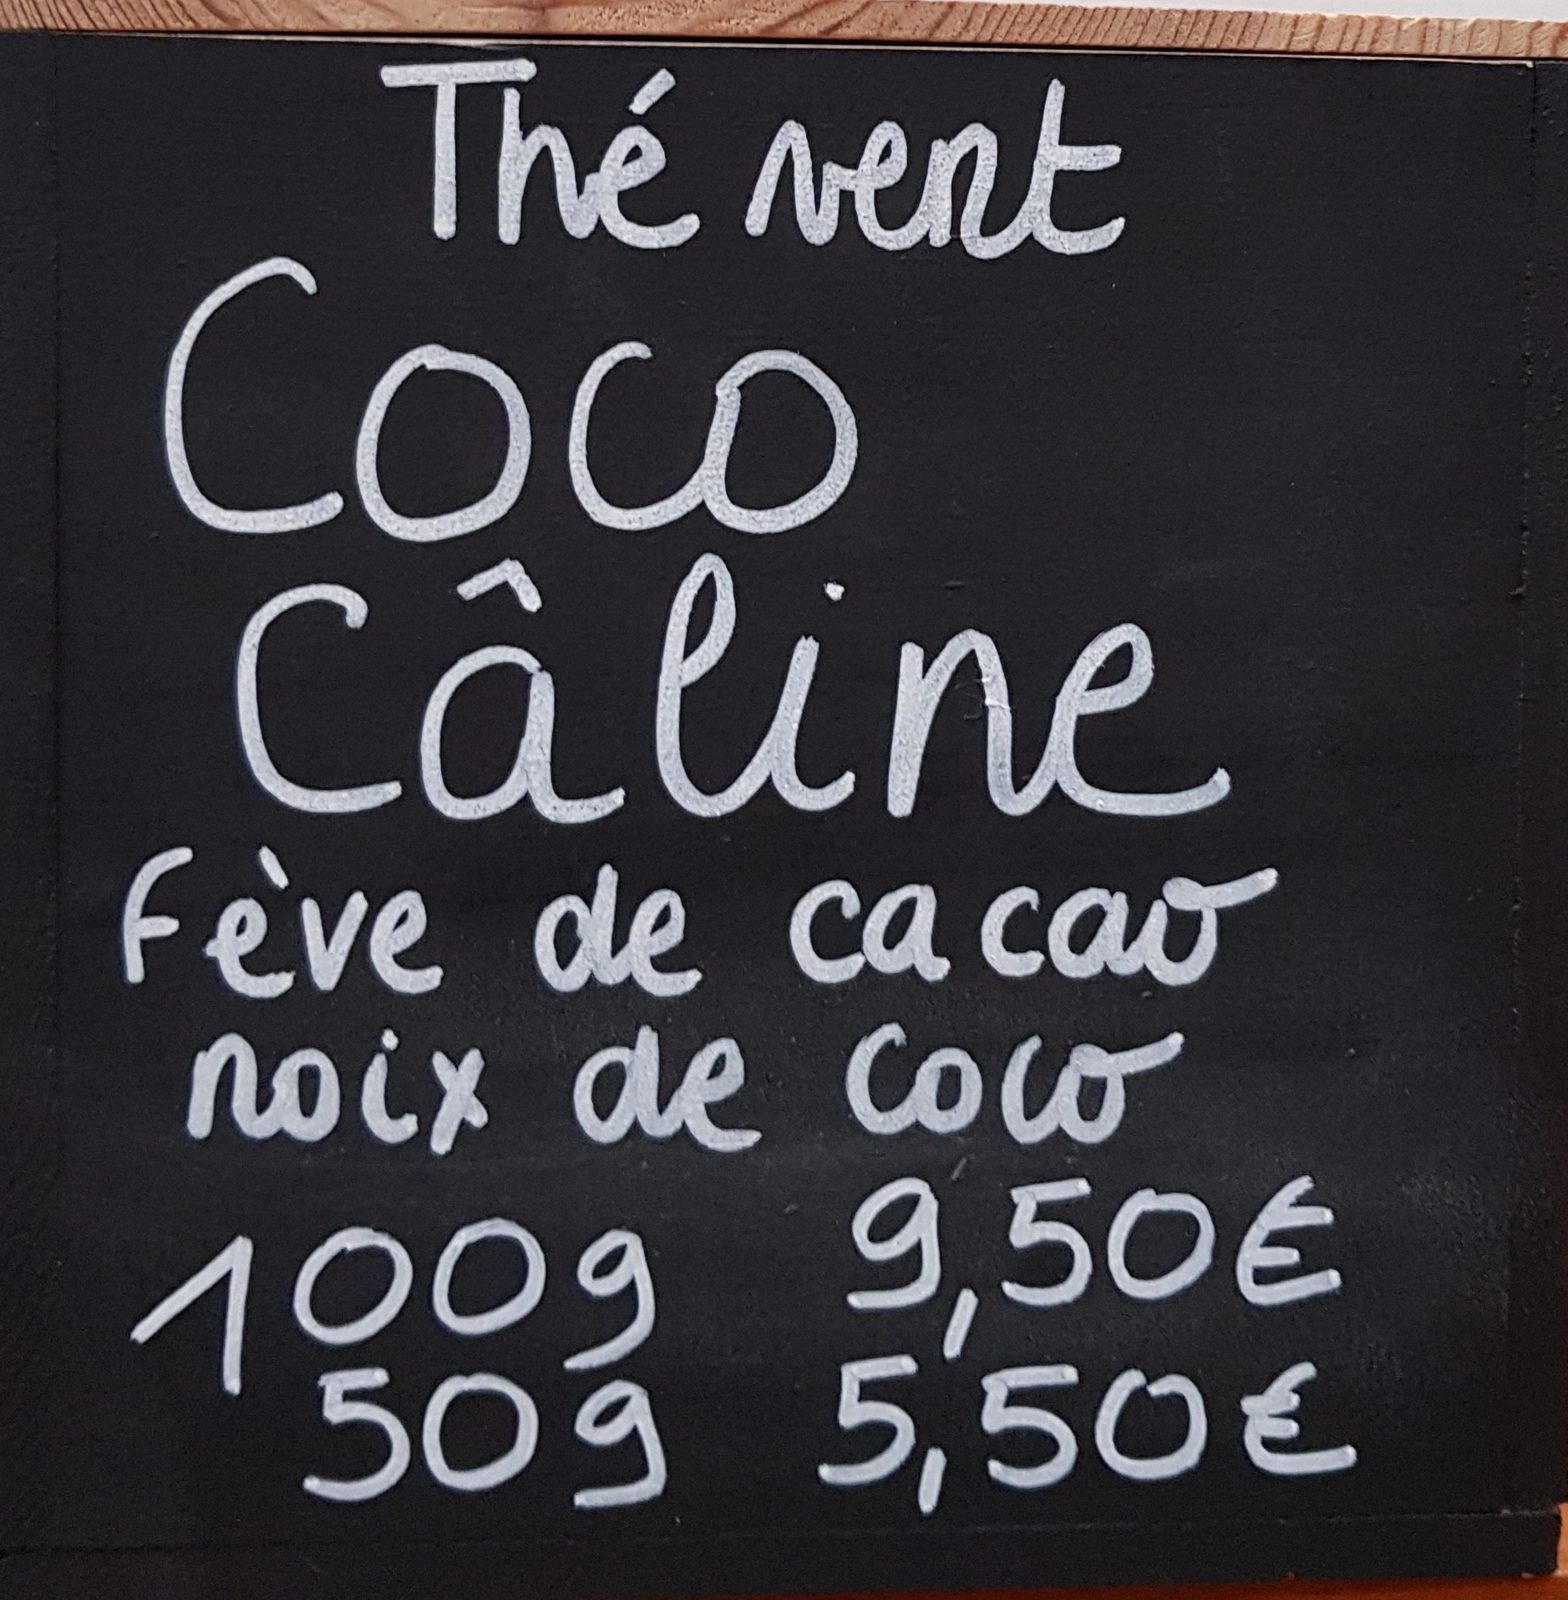 Thé vert
Coco
Câline
Fève de cacao
noix de coco
100g 9,50€
50g 5,50€